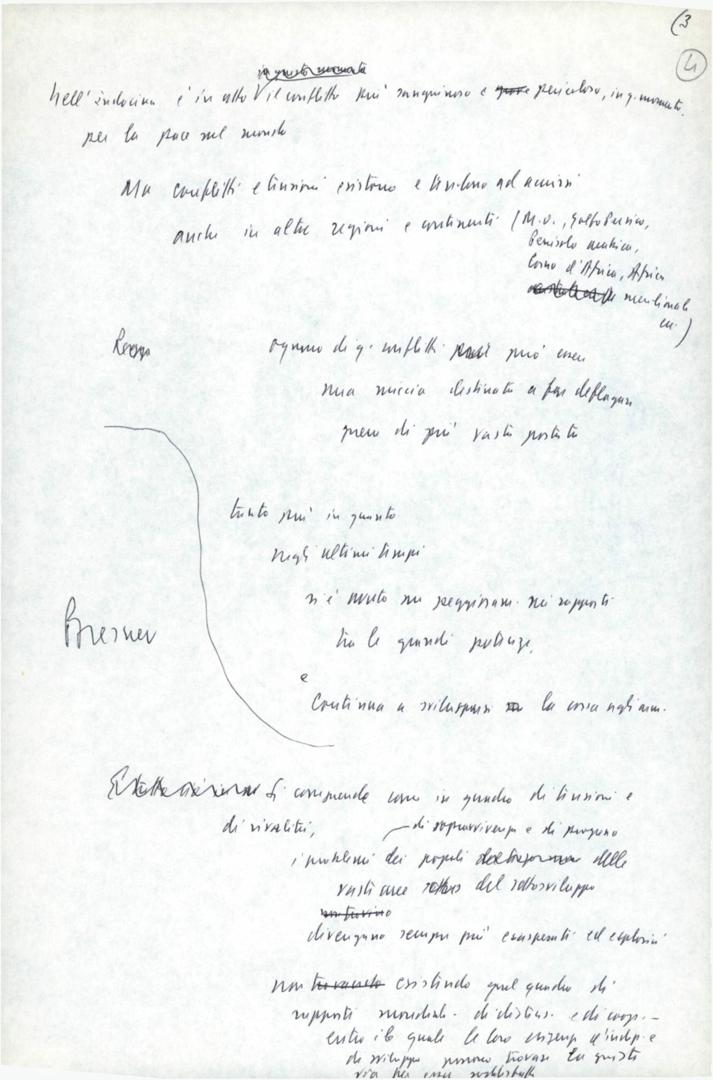 (3
4
in questo momento
Nell'indocina è in atto il conflitto più sanguinoso e pericoloso, in q. momento,
per la pace nel mondo
Ma conflitti e tensioni esistono e tendono ad acuirsi
anche in altre regioni e continenti (M.O., Golfo Persico,
Penisola arabica,
Corno d'Africa, Africa
meridionale
ecc.)
ognuno di q. conflitti può essere
una miccia destinata a far deflagrare
guerre di più vasta portata
tanto più in quanto
negli ultimi tempi
si è avuto un peggioram. nei rapporti
tra le grandi potenze,
e
continua a svilupparsi la corsa agli arm.
Bresnev
Si comprende come in quadro di tensioni e
di rivalità,
di sopravvivenza e di progresso
i problemi dei popoli delle
vaste aree del sottosviluppo
divengano sempre più esasperati ed esplosivi
non esistendo quel quadro di
rapporti mondiali di distens. e di coop.
entro il quale le loro esigenze d'indip. e
di sviluppo possono trovare la giusta
via per esser soddisfatte